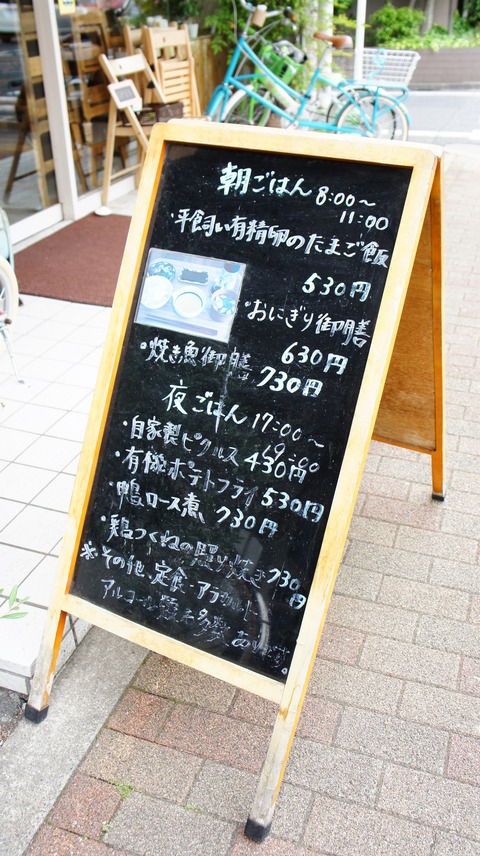 朝ごはん 8:00〜
11:00
・平飼い有精卵のたまご飯
530円
・おにぎり御膳
630円
・焼き魚御膳
730円
夜ごはん 17:00〜
・自家製ピクルス 430円
・有機ポテトフライ 530円
・鴨ロース煮 730円
・鶏つくねの照り焼き 730
円
※その他、定食・アラカルト・
アルコール類も多数あります。